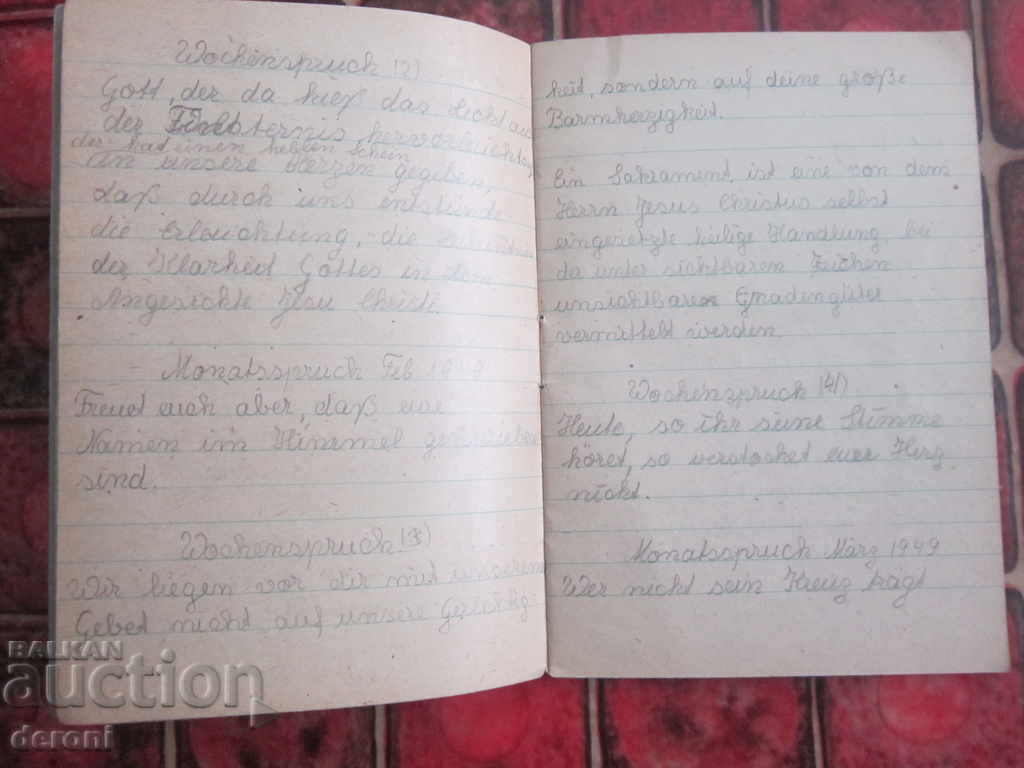 Wochenspruch (2)
Gott, der da hieß das Licht aus
der Finsternis hervorleuchten,
der hat einen hellen Schein
in unsere Herzen gegeben,
daß durch uns entstünde
die Erleuchtung, die
der Klarheit Gottes in dem
Angesichte Jesu Christi.
Monatsspruch Feb. 1949
Freuet euch aber, daß eure
Namen im Himmel geschrieben
sind.
Wochenspruch (3)
Wir liegen vor dir mit unserem
Gebet nicht auf unsere Gerechtig-
heit, sondern auf deine große
Barmherzigkeit.
Ein Sakrament ist eine von dem
Herrn Jesus Christus selbst
eingesetzte heilige Handlung, bei
da unter sichtbaren Zeichen
unsichtbare Gnadengüter
vermittelt werden
Wochenspruch (4)
Heute, so ihr seine Stimme
höret, so verstocket euer Herz
nicht.
Monatsspruch März 1949
Wer nicht sein Kreuz trägt
BALKAN
auction
deroni